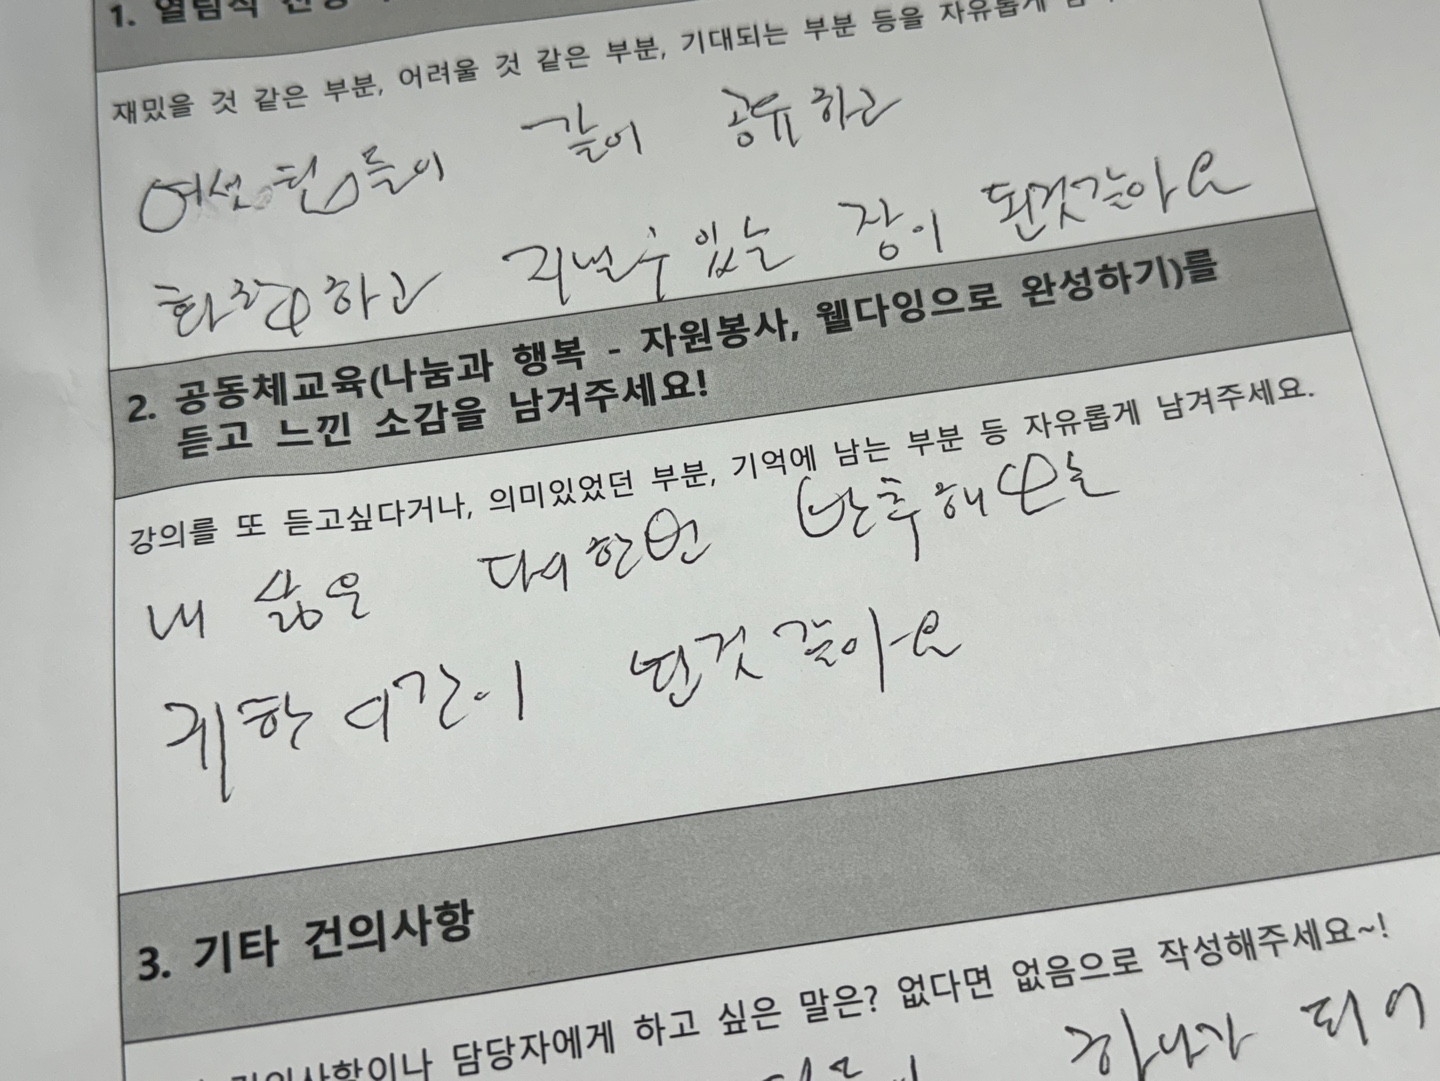 1. 열림식
재밌을 것 같은 부분, 어려울 것 같은 부분, 기대되는 부분 등을 자유롭게
여섯 팀들이 같이 공유하고
화합하고 지낼수 있는 장이 된것같아요
2. 공동체교육(나눔과 행복 - 자원봉사, 웰다잉으로 완성하기)를
듣고 느낀 소감을 남겨주세요!
강의를 또 듣고싶다거나, 의미있었던 부분, 기억에 남는 부분 등 자유롭게 남겨주세요.
내 삶을 다시한번 반추해보는
귀한 시간이 된것 같아요
3. 기타 건의사항
건의사항이나 담당자에게 하고 싶은 말은? 없다면 없음으로 작성해주세요~!
하나가 되어